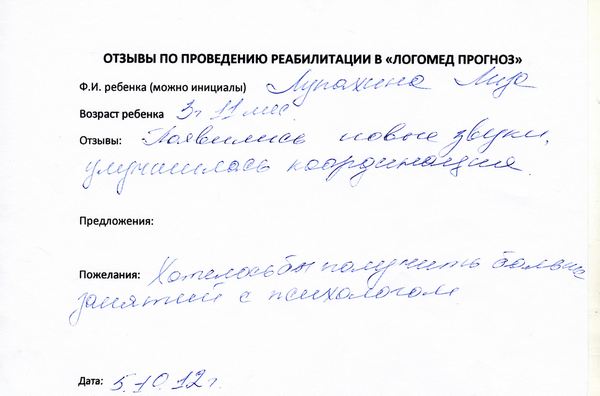 ОТЗЫВЫ ПО ПРОВЕДЕНИЮ РЕАБИЛИТАЦИИ В «ЛОГОМЕД ПРОГНОЗ»
Ф.И. ребенка (можно инициалы) Лупахина Лиза
Возраст ребенка 3г 11 мес.
Отзывы: Появились новые звуки,
улучшилась координация.
Предложения:
Пожелания: Хотелось бы получить больше
занятий с психологом
Дата: 5.10.12г.